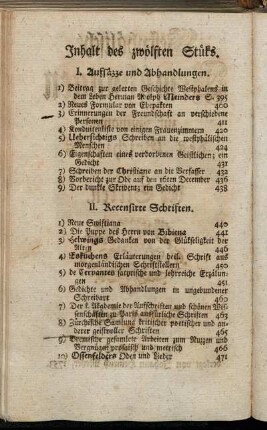 Inhalt des zwölften Stüks.
I. Aufsäzze und Abhandlungen.
1) Beitrag zur gelerten Geschichte Westphalens in
dem Leben Herman Adolph Meinders S. 395
2) Neues Formular von Ehepakten 400
3) Erinnerungen der Freundschaft an verschiedene
Personen 411
4) Konduitenliste von einigen Frauenzimmern 420
5) Uebersichtigs Schreiben an die westphälischen
Menschen 424
6) Eigenschaften eines verdorbenen Geistlichen; ein
Gedicht 431
7) Schreiben der Christiane an die Verfasser 432
8) Vorbericht zur Ode auf den 16ten December 436
9) Der dunkle Skribent; ein Gedicht 438
II. Recensirte Schriften.
1) Neue Swiftiana 440
2) Die Puppe des Herrn von Bibiena 441
3) Helwings Gedanken von der Glükseligkeit der
Alten 446
4) Loküchens Erläuterungen heil. Schrift aus
morgenländischen Schriftstellern 450
5) de Cervantes satyrische und lehrreiche Erzälungen
451
6) Gedichte und Abhandlungen in ungebundener
Schreibart 460
7) Der k. Akademie der Aufschriften und schönen Wissenschäften
zu Paris ausfürliche Schriften 463
8) Zürchische Samlung kritischer poetischer und anderer
geistvoller Schriften 465
9) Bremische gesamlete Arbeiten zum Nuzzen und
Vergnügen prosaisch und metrisch 466
10) Ossenfelders Oden und Lieder 471